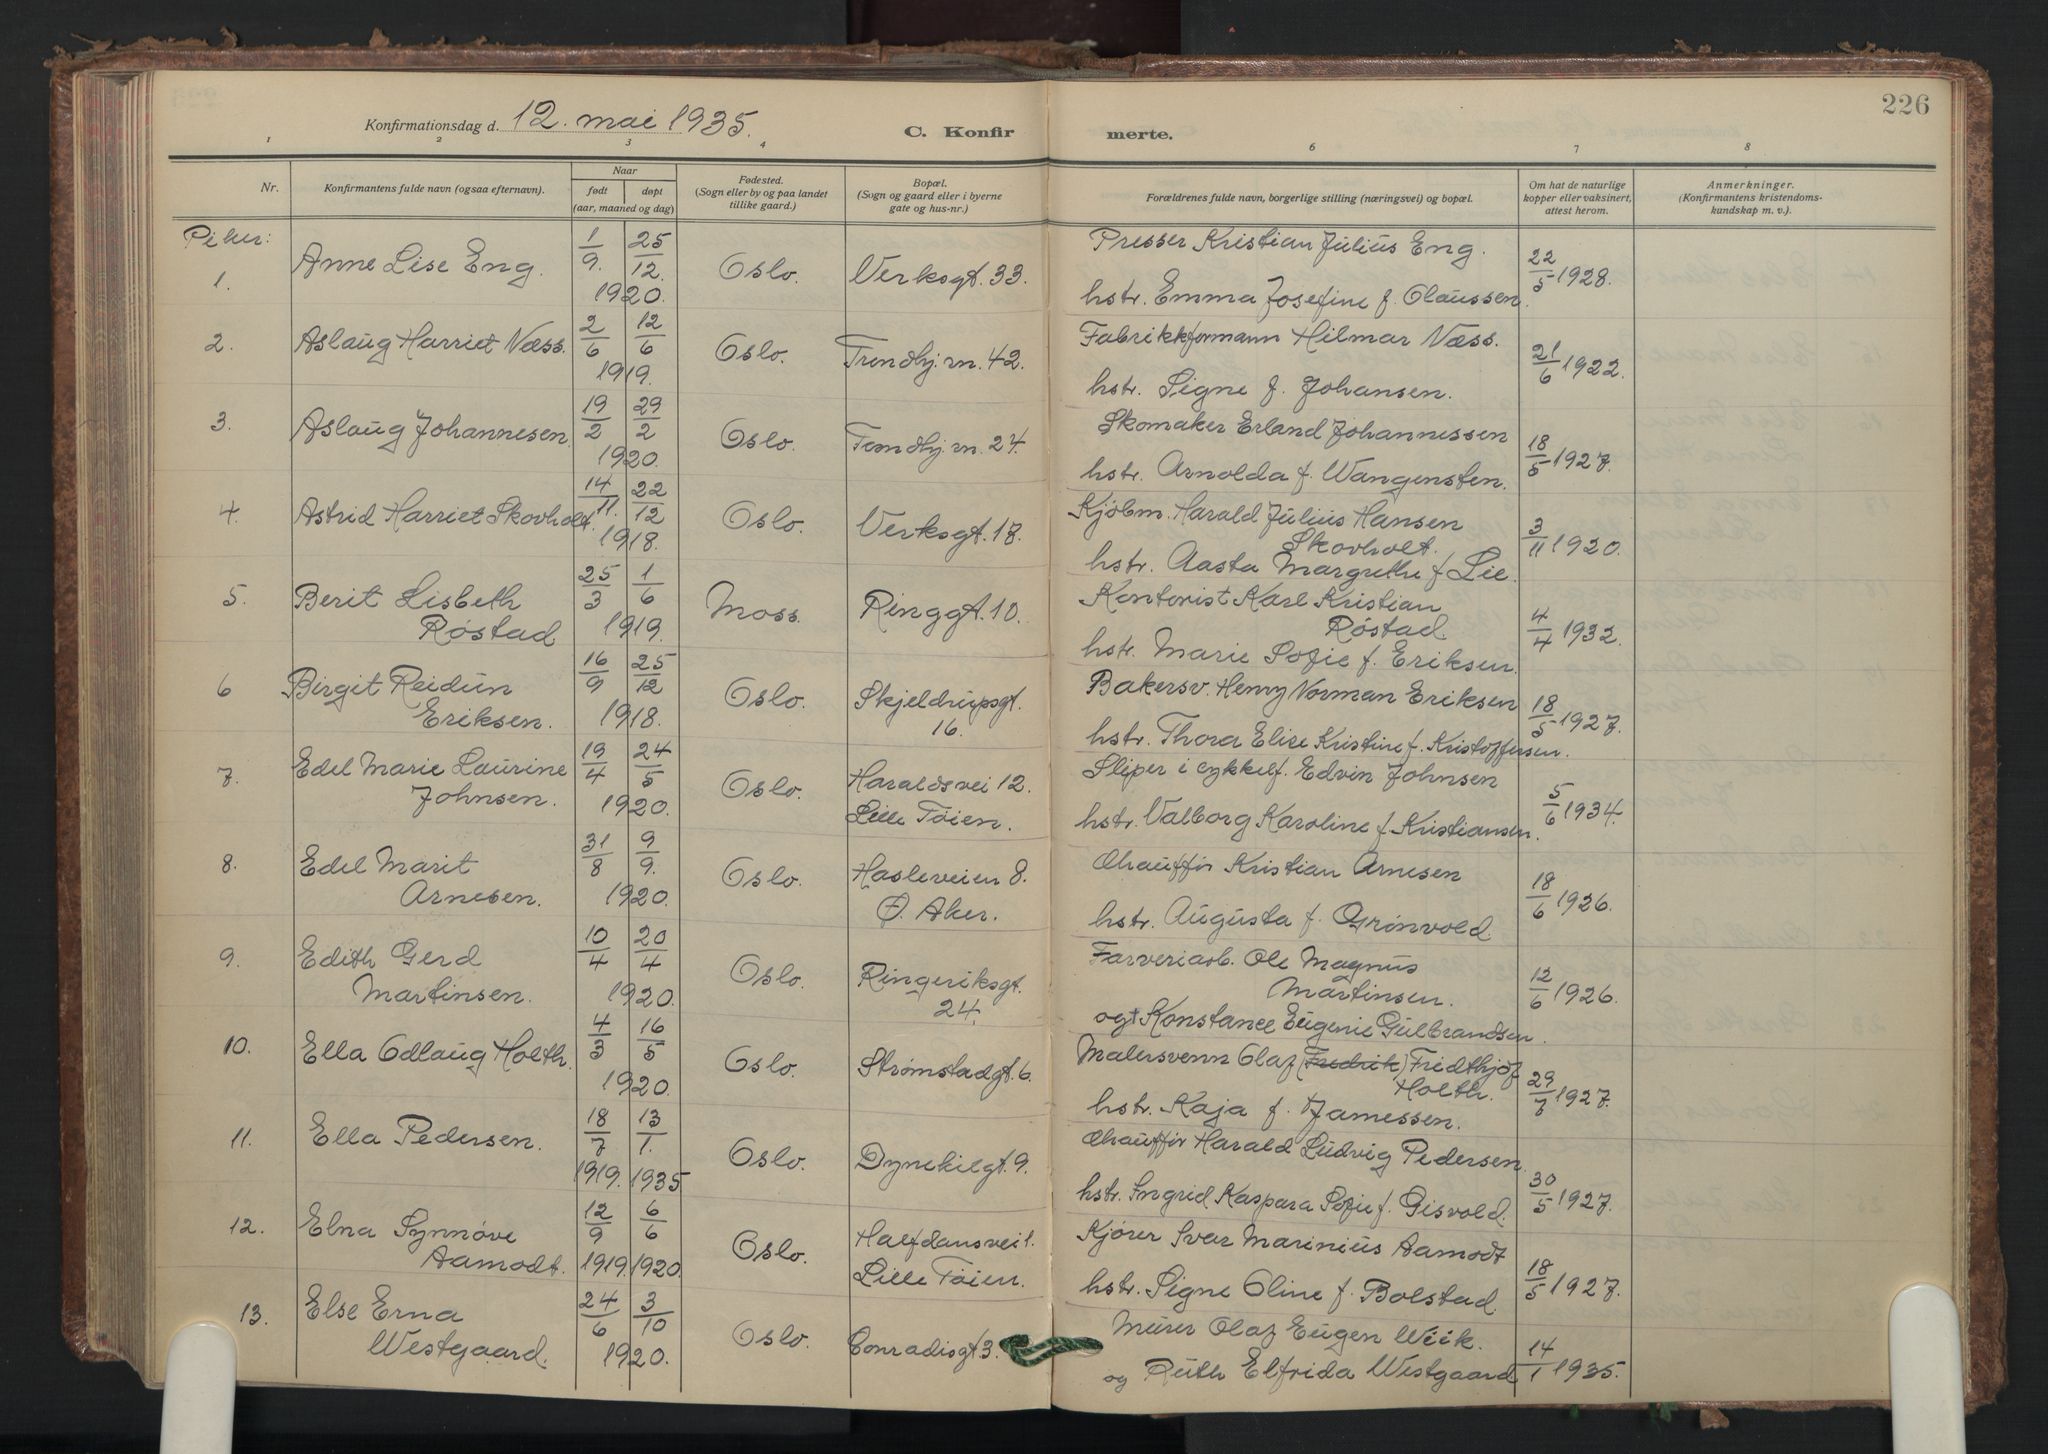 226
Konfirmationsdag d. 12. mai 1935.
C. Konfir merte.
1 2 3 4 6 7 8
Nr.
Konfirmantens fulde navn (ogsaa efternavn).
Naar
født døpt
(aar, maaned og dag)
Fødested.
(Sogn eller by og paa landet
tillike gaard.)
Bopæl.
(Sogn og gaard eller i byerne
gate og hus-nr.)
Forældrenes fulde navn, borgerlige stilling (næringsvei) og bopæl.
Om hat de naturlige
kopper eller vaksinert,
attest herom.
Anmerkninger.
(Konfirmantens kristendoms-
kundskap m. v.).
Piker:
1. Anne Lise Eng. 1/9. 25/12. 1920. Oslo. Verksgt. 33. Presser Kristian Julius Eng. 22/5 1928.
hstr. Emma Josefine f. Olaussen.
2. Aslaug Harriet Næss. 2/6 12/6 1919. Oslo. Trondhj.vn. 42. Fabrikkformann Hilmar Næss. 21/6 1922.
hstr. Signe f. Johansen.
3. Aslaug Johannesen. 19/2 29/2 1920. Oslo. Trondhj.vn. 24. Skomaker Erland Johannessen 18/5 1927.
hstr. Arnolda f. Wangensten.
4. Astrid Harriet Skovholt. 14/11. 22/12 1918. Oslo. Verksgt. 17. Kjøbm. Harald Julius Hansen 3/11 1920.
Skovholt.
hstr. Aasta Margrethe f. Lie.
5. Berit Lisbeth 25/3 1/6 Moss. Ringgt. 10. Kontorist Karl Kristian 4/4 1932.
Røstad 1919. Røstad.
hstr. Marie Sofie f. Eriksen.
6 Birgit Reidun 16/9 25/12 Oslo. Skjeldrupsgt. Bakersv. Henry Norman Eriksen 18/5 1927.
Eriksen. 1918. 16.
hstr. Thora Elise Kristine f. Kristoffersen.
7. Edel Marie Laurine 19/4 24/5 Oslo. Haraldsvei 12. Sliper i cykkelf. Edvin Johnsen 5/6 1934.
Johnsen. 1920. Lille Tøien.
hstr. Valborg Karoline f. Kristiansen.
8. Edel Marit 31/8 9/9. Oslo. Hasleveien 8. Chauffør Kristian Arnesen 18/6 1926.
Arnesen. 1920. Ø. Aker.
hstr. Augusta f. Grønvold.
9. Edith Gerd 10/4 20/4 Oslo. Ringeriksgt. Farveriarb. Ole Magnus 12/6 1926.
Martinsen. 1920. 24. Martinsen.
og Konstance Eugenie Gulbrandsen.
10. Ella Odlaug Holth. 4/3 16/5 1920. Oslo. Strømstadgt. 6. Malersvenn Olaf (Fredrik) Fridthjof 29/7 1927.
Holth.
hstr. Kaja f. Jamessen.
11. Ella Pedersen. 18/7 13/1. 1919. 1935 Oslo. Dynekilgt. 9. Chauffør Harald Ludvig Pedersen. 30/5 1927.
hstr. Ingrid Kaspara Sofie f. Gisvold.
12. Elna Synnøve 12/9 6/6 Oslo. Halfdansvei 1. Kjører Ivar Marinius Aamodt 18/5 1927.
Aamodt. 1919. 1920. Lille Tøien.
hstr. Signe Oline f. Bolstad.
13. Else Erna 24/6 3/10 Oslo. Conradisgt. 3. Murer Olaf Eugen Wiik. 14/1 1935.
Westgaard. 1920.
og Ruth Elfrida Westgaard